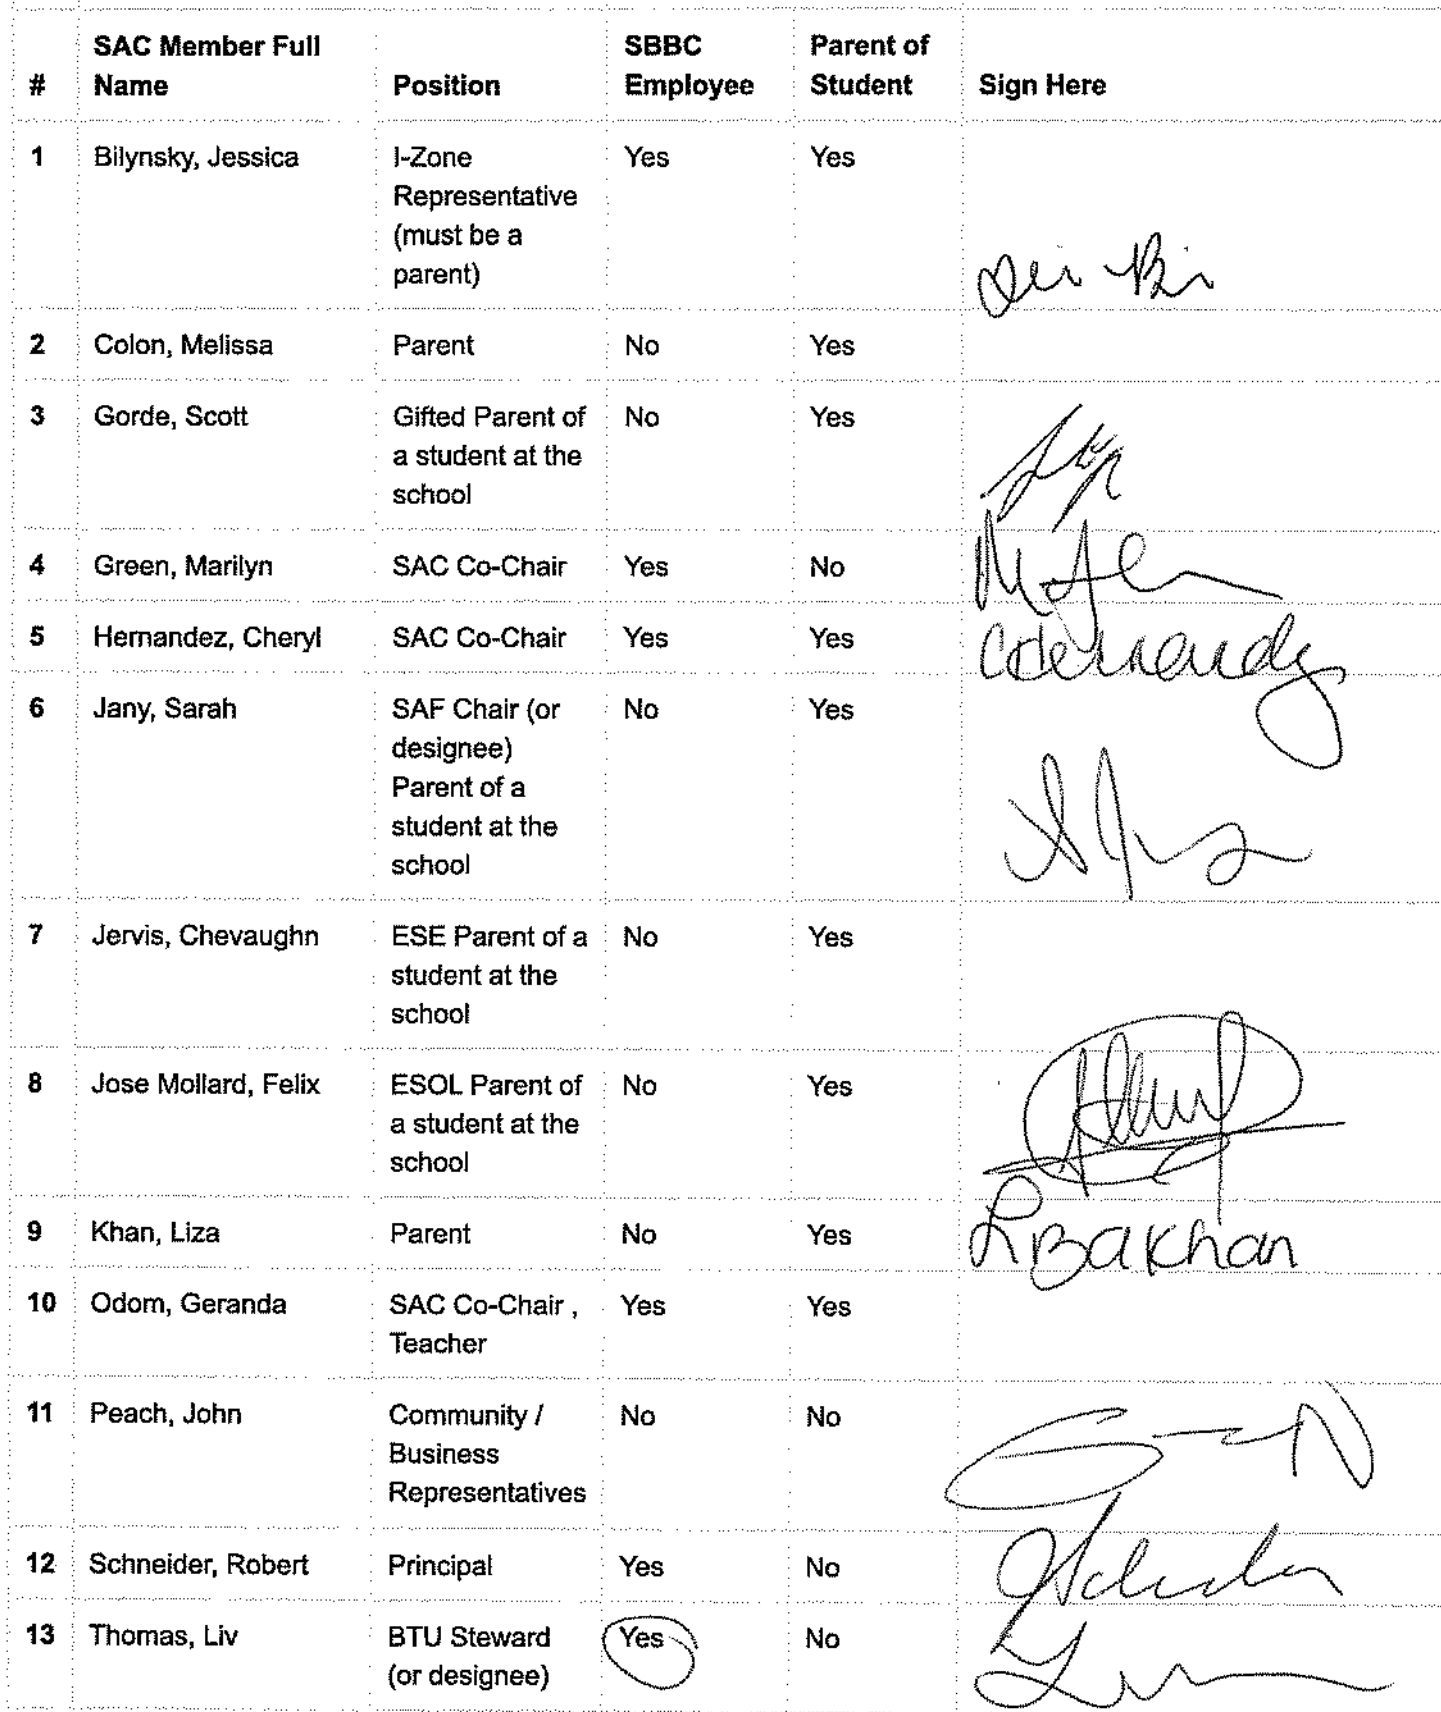 # SAC Member Full Name Position SBBC Employee Parent of Student Sign Here
1 Bilynsky, Jessica I-Zone Representative (must be a parent) Yes Yes
2 Colon, Melissa Parent No Yes
3 Gorde, Scott Gifted Parent of a student at the school No Yes
4 Green, Marilyn SAC Co-Chair Yes No
5 Hernandez, Cheryl SAC Co-Chair Yes Yes
6 Jany, Sarah SAF Chair (or designee) Parent of a student at the school No Yes
7 Jervis, Chevaughn ESE Parent of a student at the school No Yes
8 Jose Mollard, Felix ESOL Parent of a student at the school No Yes
9 Khan, Liza Parent No Yes
10 Odom, Geranda SAC Co-Chair , Teacher Yes Yes
11 Peach, John Community / Business Representatives No No
12 Schneider, Robert Principal Yes No
13 Thomas, Liv BTU Steward (or designee) Yes No